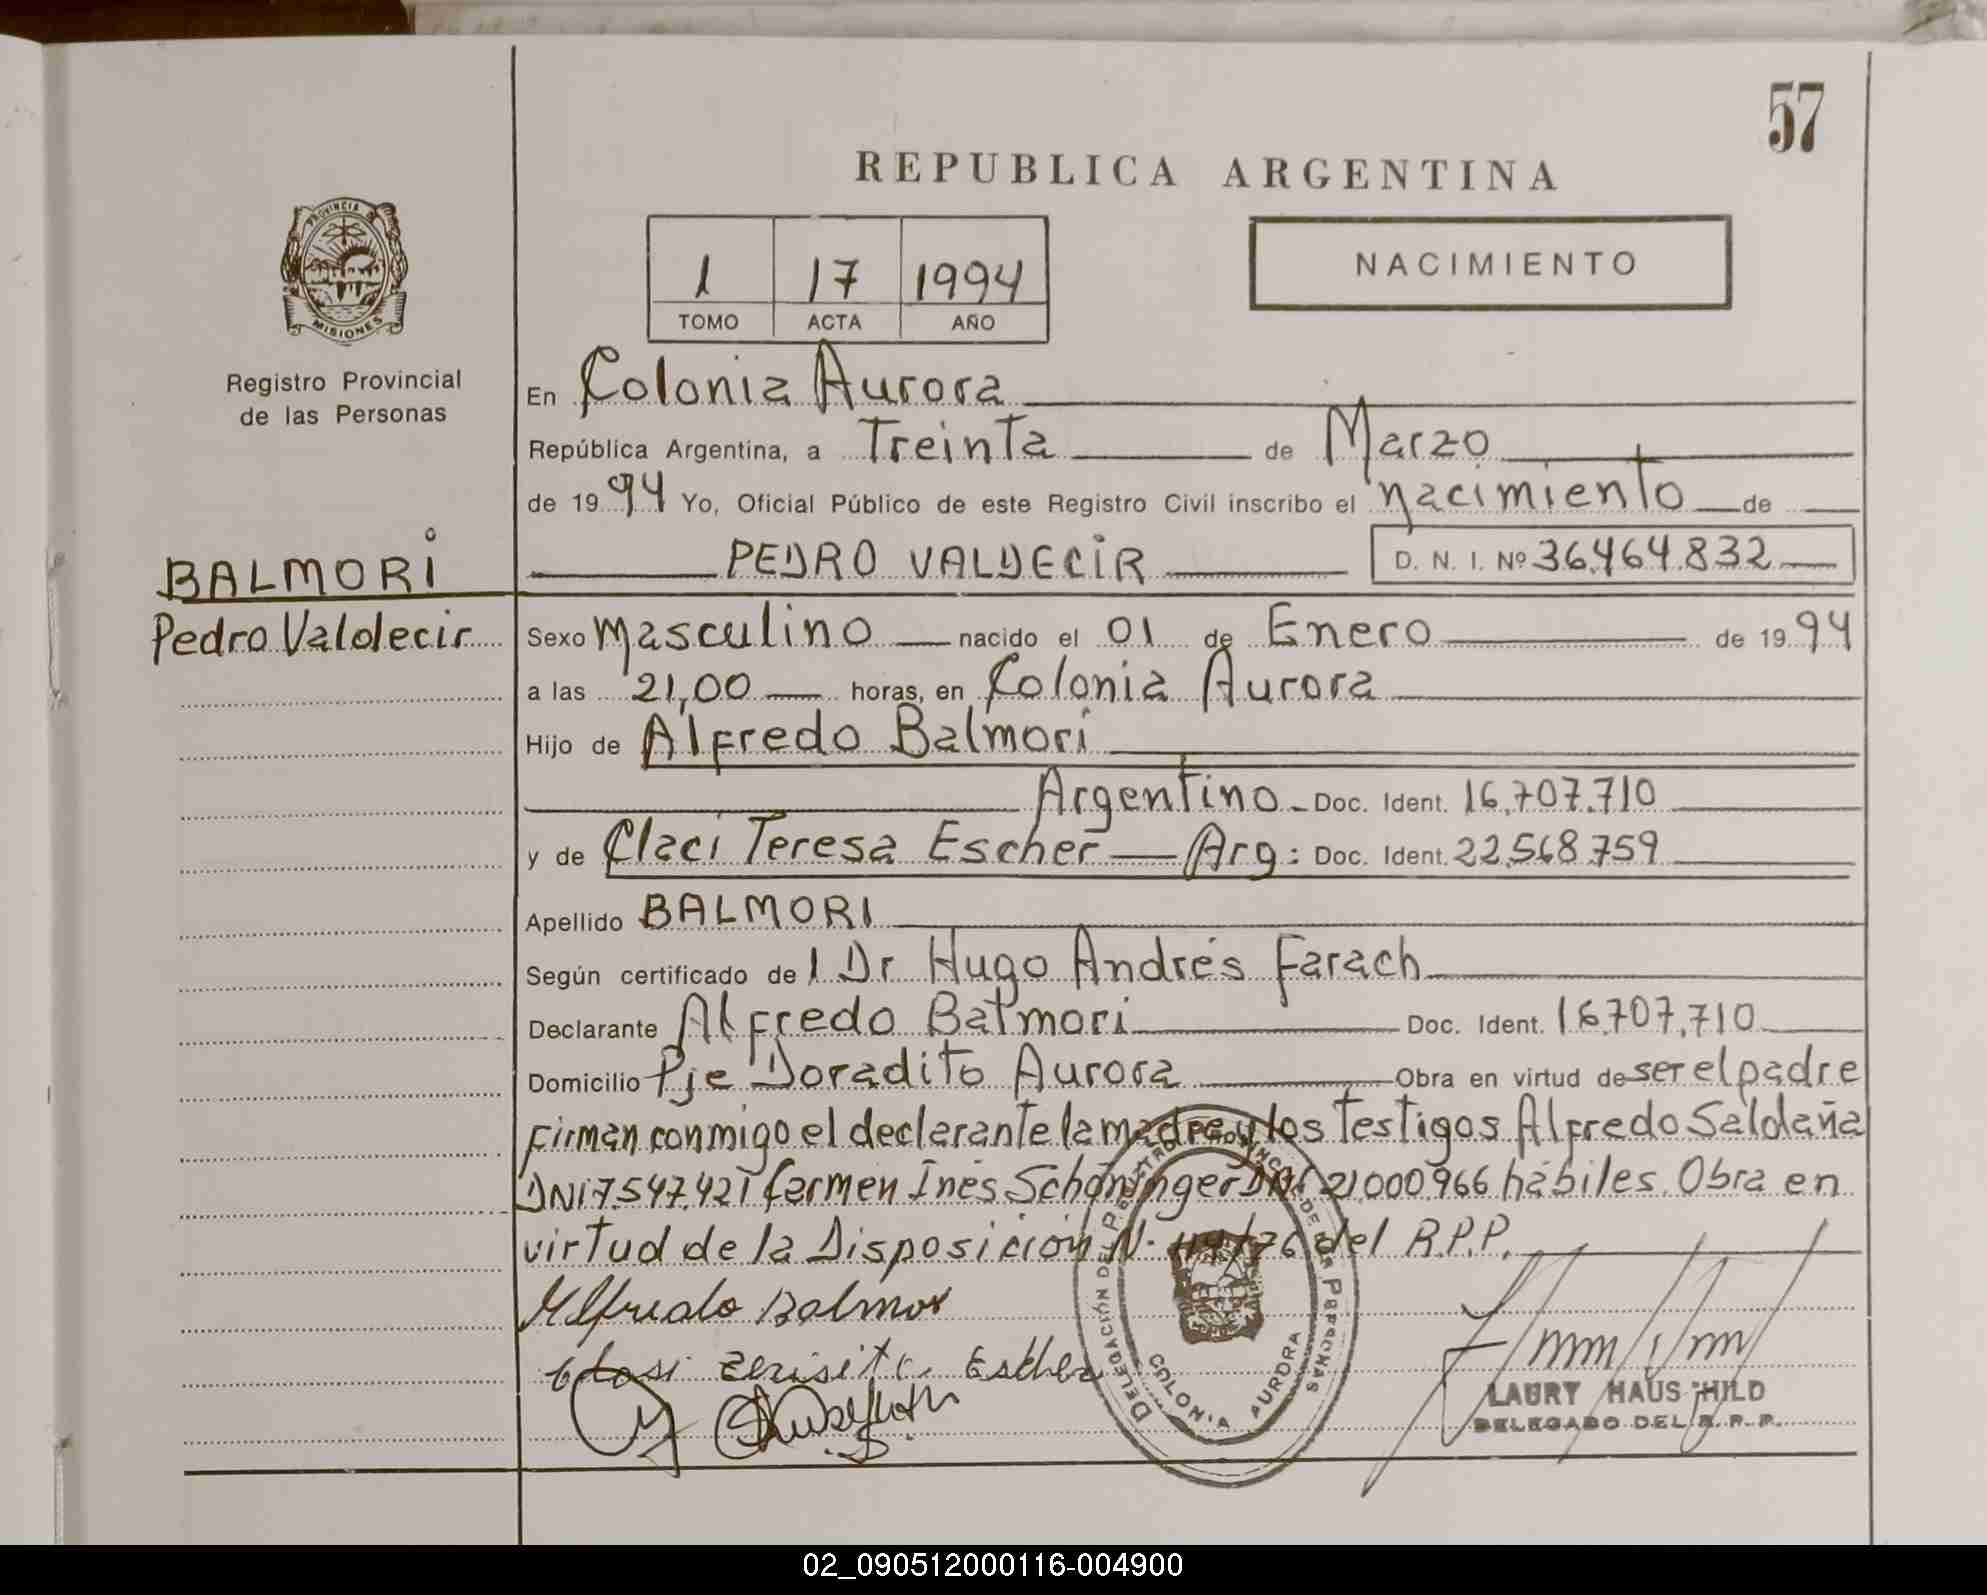 57
REPUBLICA ARGENTINA
PROVINCIA DE
MISIONES
Registro Provincial
de las Personas
1 17 1994
TOMO ACTA AÑO
NACIMIENTO
En Colonia Aurora
República Argentina, a Treinta de Marzo
de 1994 Yo, Oficial Público de este Registro Civil inscribo el nacimiento de
PEDRO VALDECIR D. N. I. Nº 36.464.832
BALMORI
Pedro Valdecir
Sexo Masculino nacido el 01 de Enero de 1994
a las 21,00 horas, en Colonia Aurora
Hijo de Alfredo Balmori
Argentino Doc. Ident. 16.707.710
y de Claci Teresa Escher Arg: Doc. Ident. 22.568.759
Apellido BALMORI
Según certificado del Dr Hugo Andrés Farach
Declarante Alfredo Balmori Doc. Ident. 16.707.710
Domicilio Pje Doradito Aurora Obra en virtud de ser el padre
Firman conmigo el declarante la madre y los Testigos Alfredo Saldaña
DNI 7.547.421 Carmen Inés Schöninger DNI 21.000966 hábiles. Obra en
virtud de la Disposición N. /76 del R.P.P.
Alfredo Balmor
Escher
DELEGACIÓN DEL REGISTRO PROVINCIAL DE LAS PERSONAS
COLONIA AURORA
LAURY HAUSCHILD
DELEGADO DEL R. P. P.
02_090512000116-004900